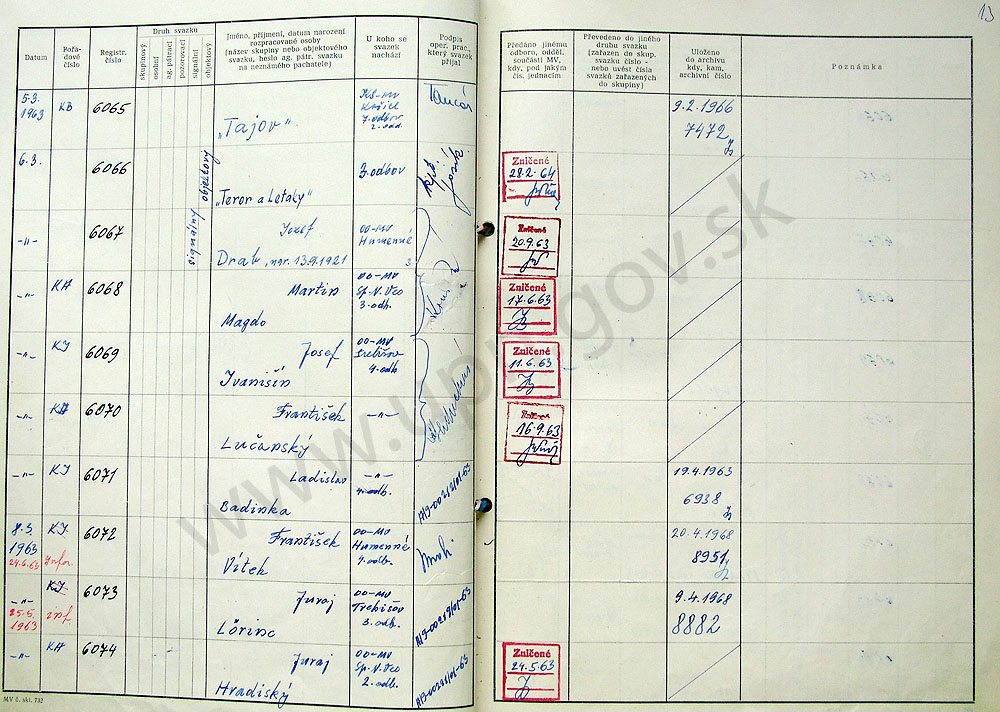 13
Datum
Pořa-
dové
číslo
Registr.
číslo
Druh svazku
skupinový
osobní
ag. pátrací
pozorovací
signální
objektový
Jméno, příjmení, datum narození
rozpracované osoby
(název skupiny nebo objektového
svazku, heslo ag. pátr. svazku
na neznámého pachatele)
U koho se
svazek
nachází
Podpis
oper. prac.,
který svazek
přijal
Předáno jinému
odboru, odděl.
součásti MV,
kdy, pod jakým
čís. jednacím
Převedeno do jiného
druhu svazku
(zařazen do skup.
svazku číslo -
nebo uvést čísla
svazků zařazených
do skupiny)
Uloženo
do archivu
kdy, kam,
archivní číslo
Poznámka
5.3.
1963
KB
6065
„Tajov"
KS-MV
Košice
7. odbor
2. odd.
9.2.1966
7472
6.3.
6066
objektový
„Teror a Letaky"
3. odbor
Zničené
28.2.64
-"-
6067
signálny
Jozef
Drab, nar. 13.9.1921
OO-MV
Humenné
3
Zničené
20.9.63
-"-
KA
6068
Martin
Magdo
OO-MV
Sp. N. Ves
3. odb.
Zničené
17.6.63
-"-
KI
6069
Josef
Ivanišín
OO-MV
Trebišov
4. odb
Zničené
11.6.63
-"-
KA
6070
František
Lučanský
-"-
Zničené
16.9.63
-"-
KI
6071
Ladislav
Badinka
-"-
4. odb.
19.4.1963
6938
8.3.
1963
24.6.63
KI
Infor.
6072
František
Vítek
OO-MV
Humenné
4. odb.
20.4.1968
8951
-"-
25.5.
1963
KI
inf.
6073
Juraj
Lörinc
OO-MV
Trebišov
3. odb.
9.4.1968
8882
-"-
KA
6074
Juraj
Hradiský
OO-MV
Sp. N. Ves
2. odb.
Zničené
24.5.63
MV č. skl. 732
www.upn.gov.sk